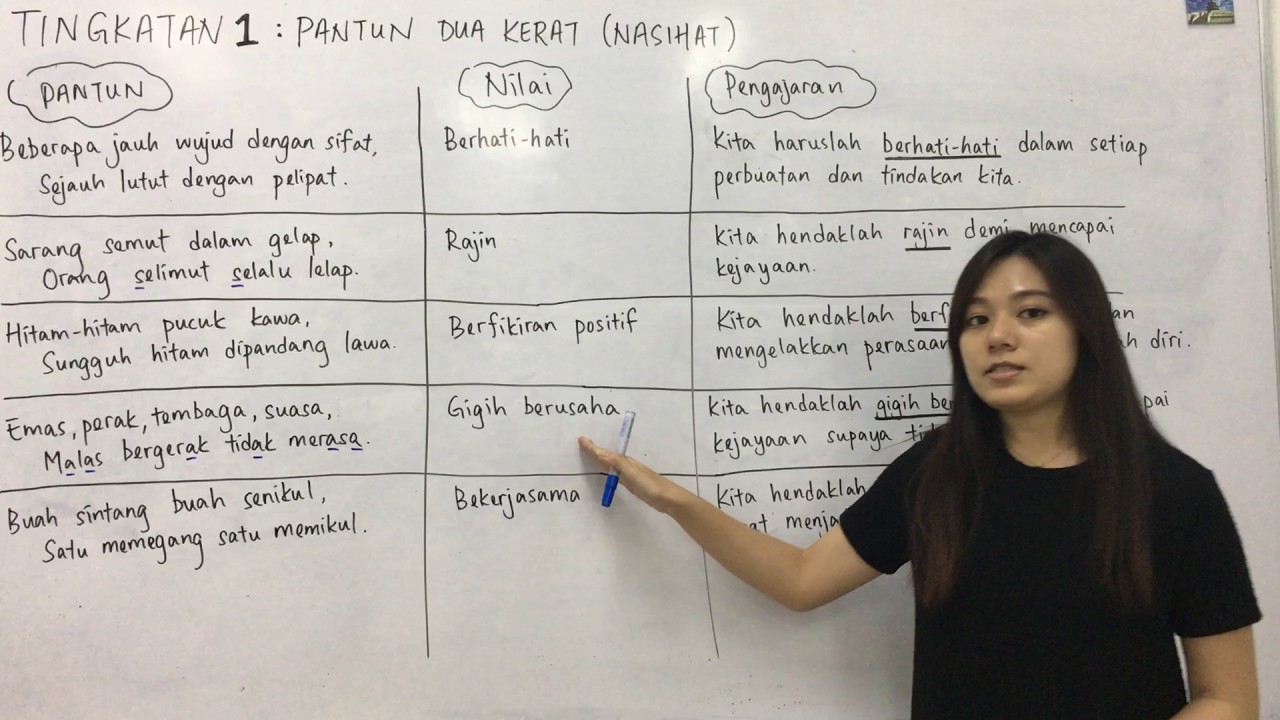 TINGKATAN 1 : PANTUN DUA KERAT (NASIHAT)
PANTUN
Nilai
Pengajaran
Beberapa jauh wujud dengan sifat,
Sejauh lutut dengan pelipat.
Berhati-hati
Kita haruslah berhati-hati dalam setiap
perbuatan dan tindakan kita.
Sarang semut dalam gelap,
Orang selimut selalu lelap.
Rajin
Kita hendaklah rajin demi mencapai
kejayaan.
Hitam-hitam pucuk kawa,
Sungguh hitam dipandang lawa.
Berfikiran positif
Kita hendaklah
mengelakkan perasaan diri.
Emas, perak, tembaga, suasa,
Malas bergerak tidak merasa.
Gigih berusaha
Kita hendaklah gigih
kejayaan supaya
Buah sintang buah senikul,
Satu memegang satu memikul.
Bekerjasama
Kita hendaklah